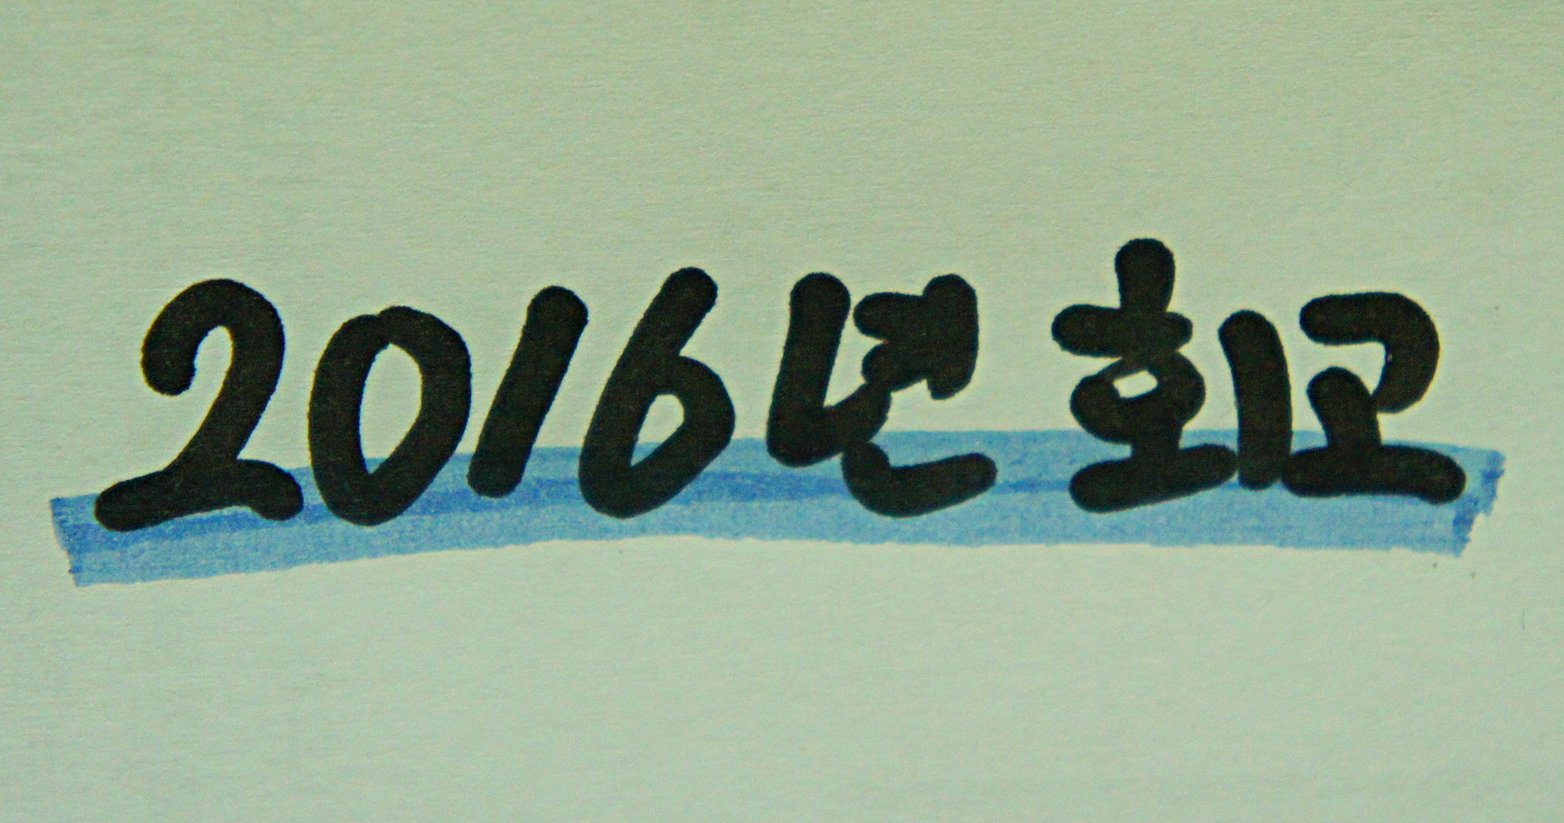 2016년 회고